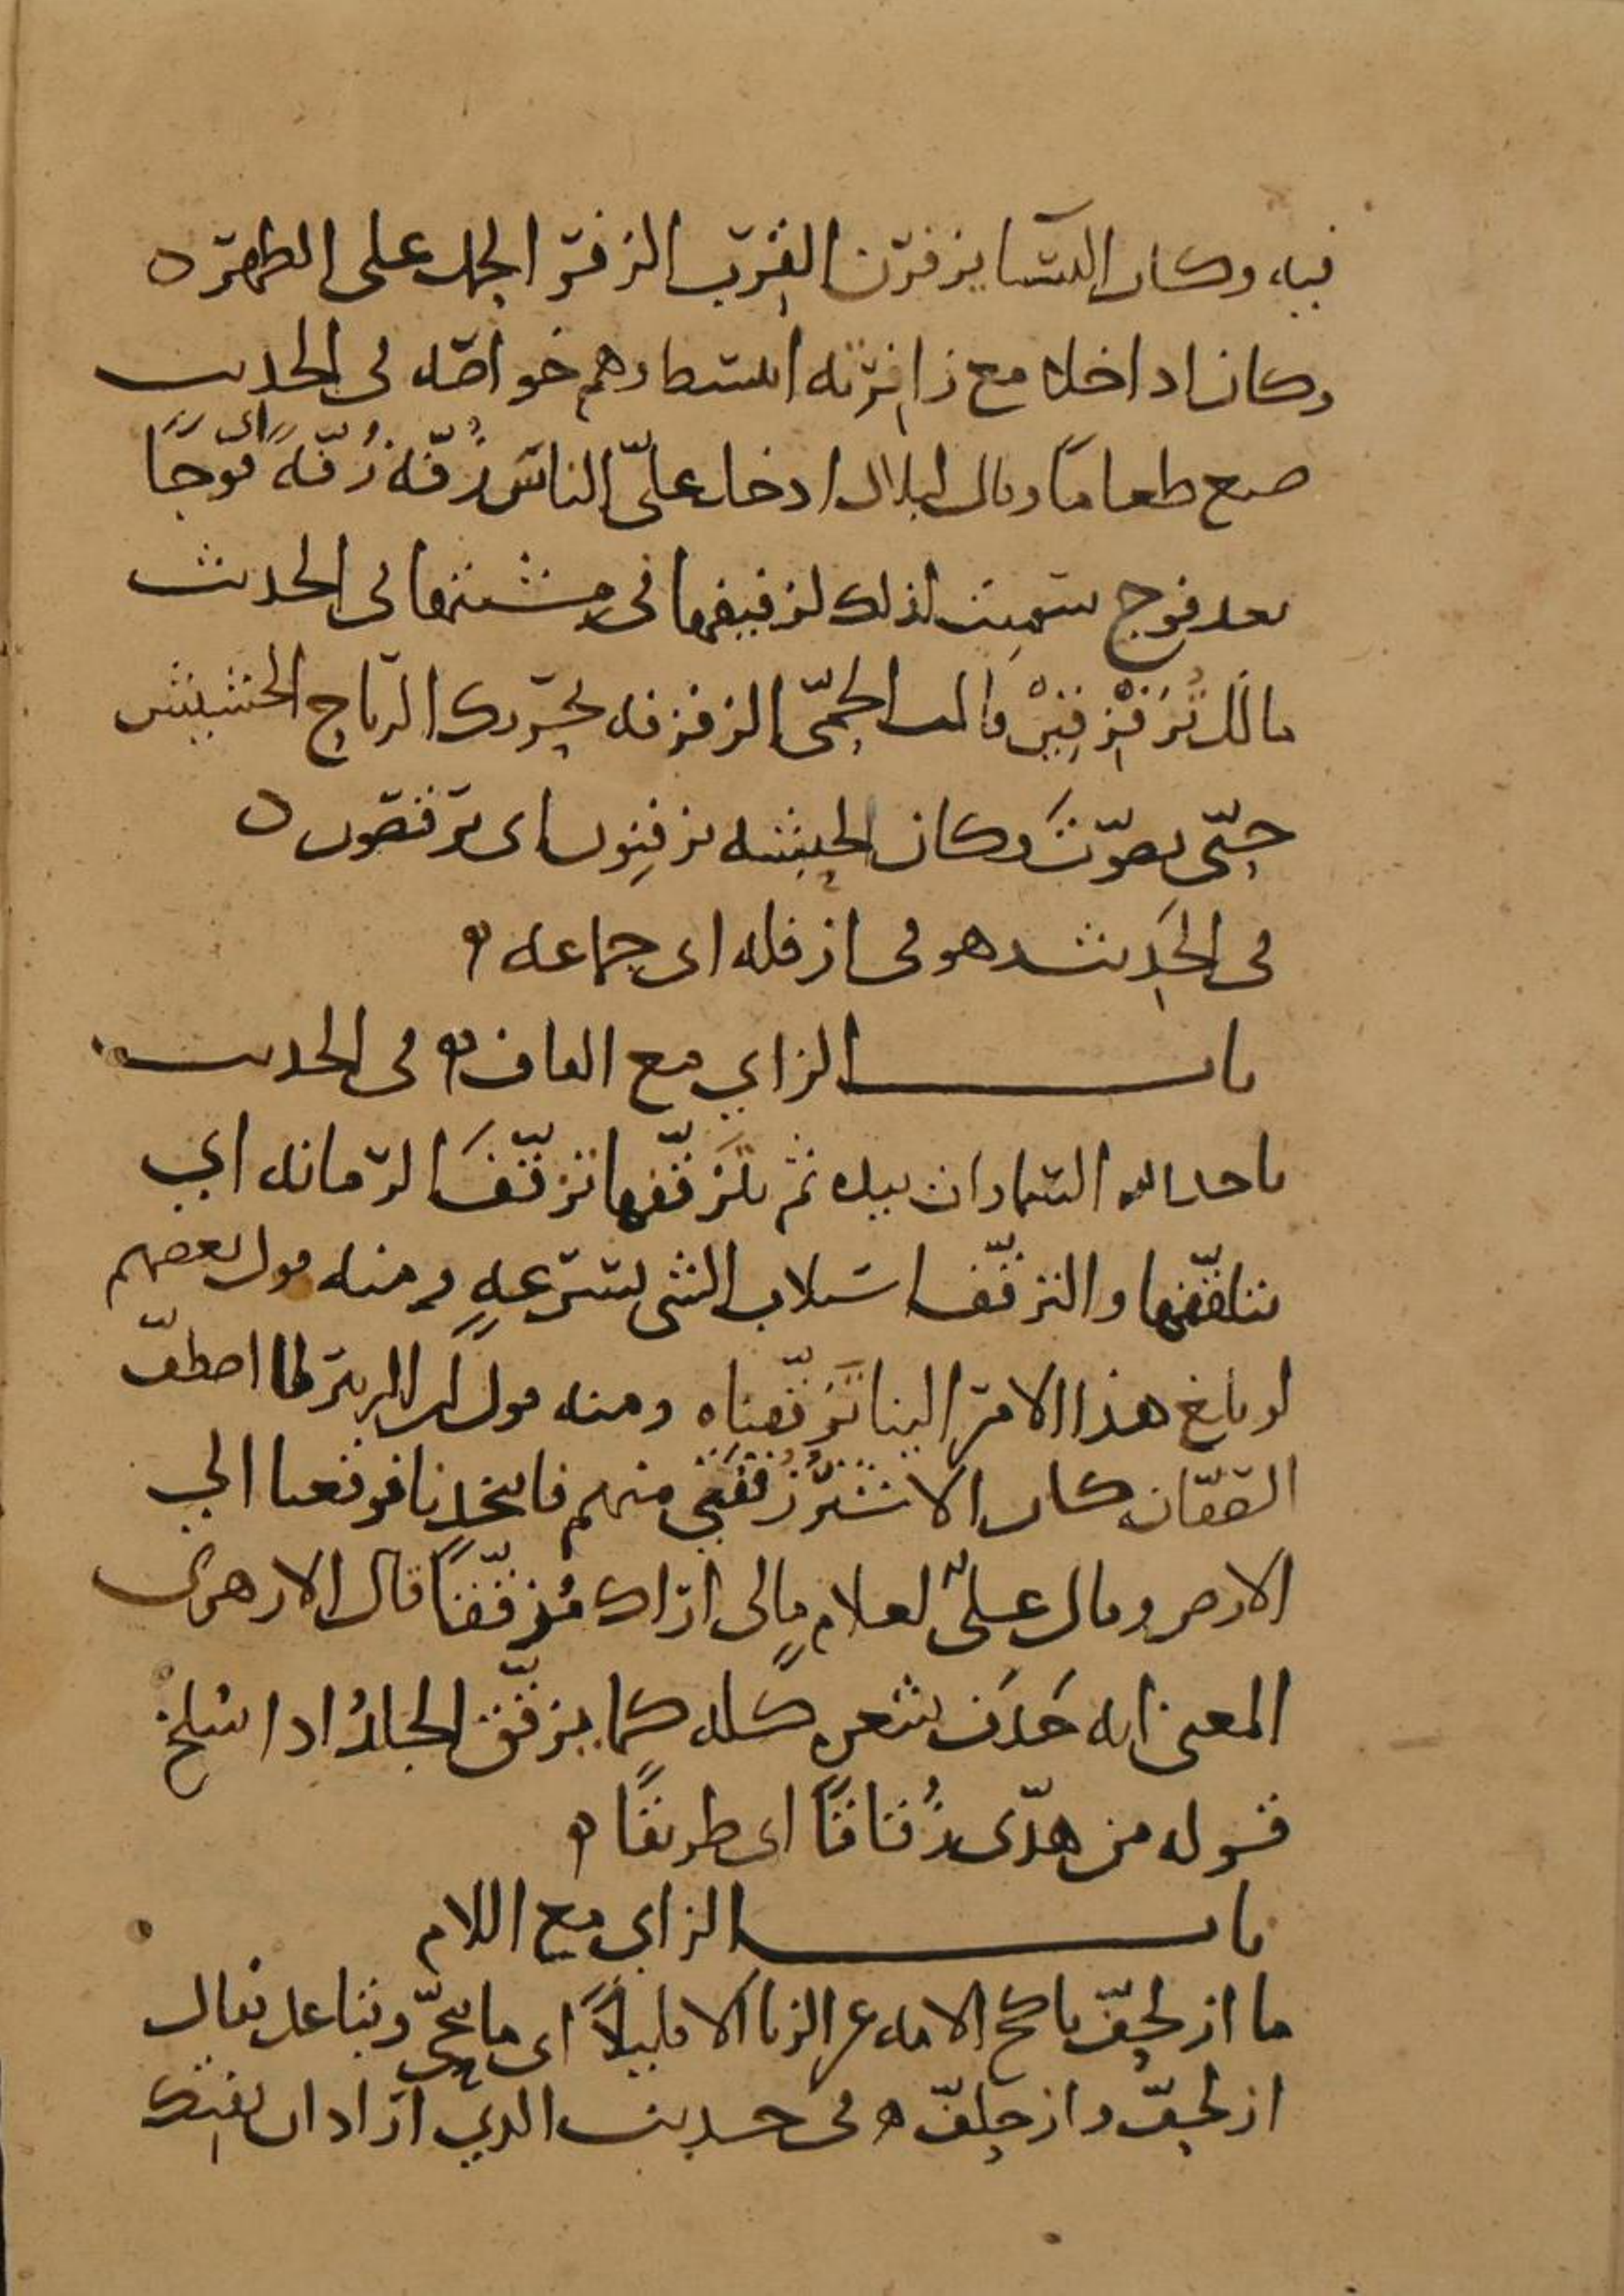 فيه وكان النسا يزفرن القرب الزفر الحمل على الظهر ه
وكان اذا خلا مع زافرته انبسط وهم خواصه في الحديث
صنع طعاما وقال لبلال ادخل علىّ الناس زُفّة زُفّة اى فوجًا
بعد فوج سميت لذلك لزفيفها فى مشيتها في الحديث
مالك تُزَفْزِفِيْن قالت الحمّى الزفزفه تحريك الرياح الحشيش
حتّى يصوّت وكان الحبشه يزفِنون اى يرقصون ه
في الحديث هو في ازفله اى جماعه ه
باب الزاي مع القاف ه في الحديث
ياخذ الله السماوات بيده ثم يتزقّفها تزقّف الرمانه اي
يتلقّفها والتزقّف استلاب الشي بسرعه ومنه قول بعضهم
لو بلغ هذا الامر الينا تَزَقّفناه ومنه قول ابن الزبير لما اصطفّ
الصفّان كان الاشتر زُقفَتي منهم فاتخذنا فوقعنا الي
الارض وقال علىّ لغلام مالى اراك مُزقّقًا قال الازهرى
المعنى انه حَذَف شعره كله كما يزقّق الجلدُ اذا سُلخ
قوله من هدّى زُقاقًا اى طريقًا ه
باب الزاي مع اللام
ما ازلحفّ ناكح الامه عن الزنا الا قليلاً اى ما تنحّى وتباعد يقال
ازلحفّ وازحلفّ ه في حديث الذي اراد ان يفتك